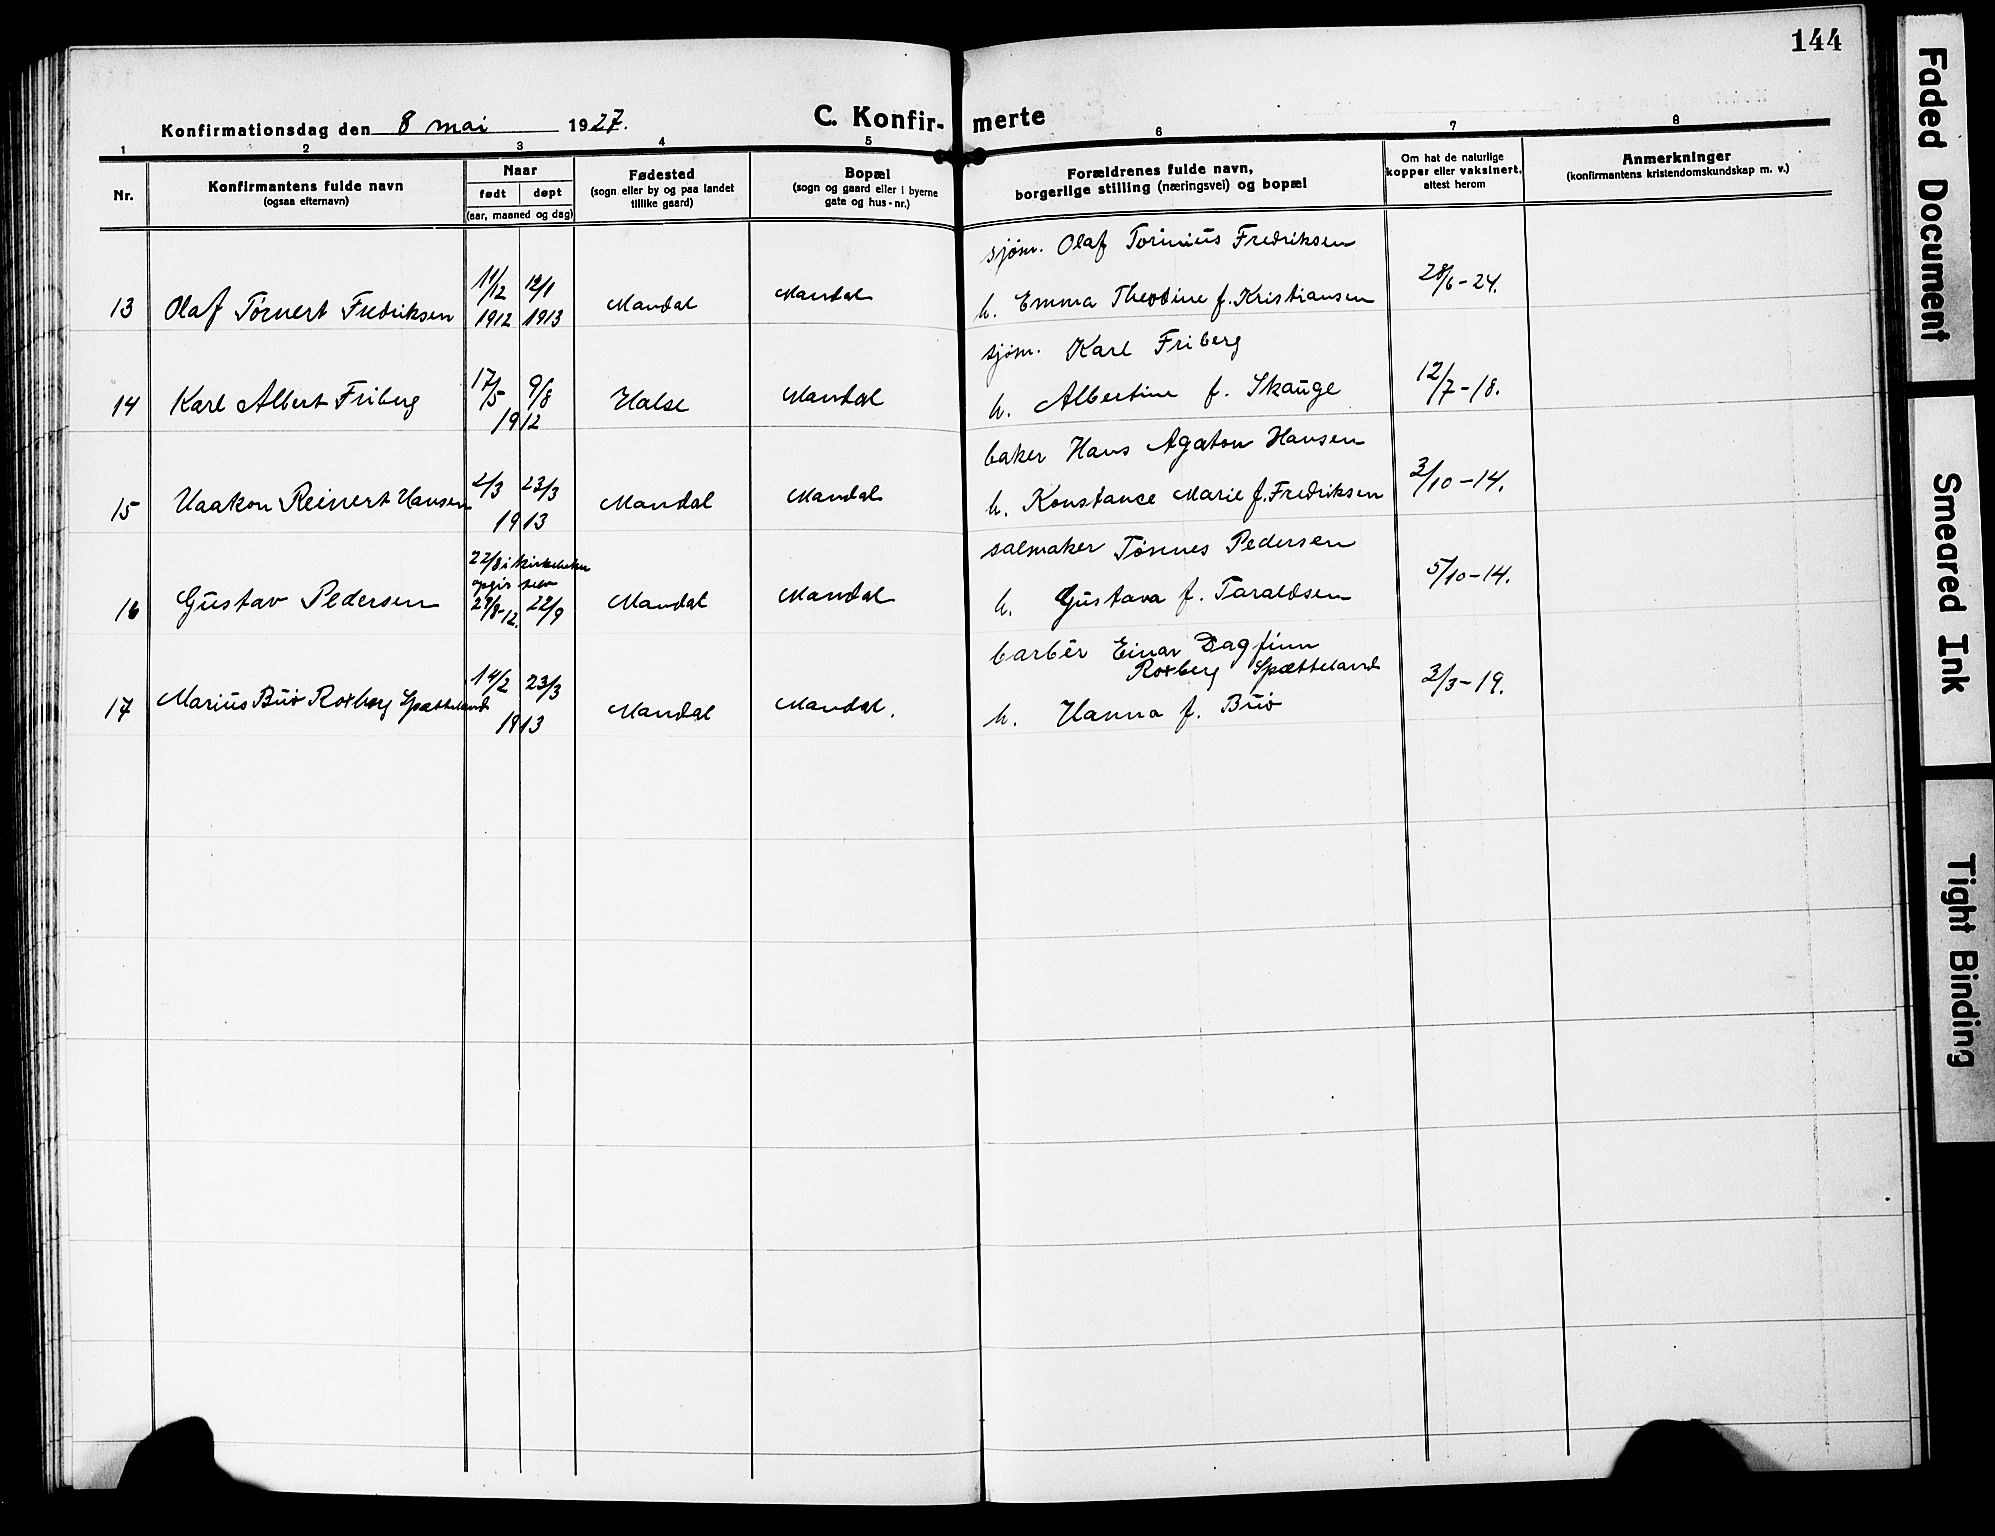 144
Konfirmationsdag den 8 mai 1927.
C. Konfir- merte
1 2 3 4 5 6 7 8
Nr.
Konfirmantens fulde navn
(ogsaa efternavn)
Naar
født døpt
(aar, maaned og dag)
Fødested
(sogn eller by og paa landet
tillike gaard)
Bopæl
(sogn og gaard eller i byerne
gate og hus-nr.)
Forældrenes fulde navn,
borgerlige stilling (næringsvei) og bopæl
Om hat de naturlige
kopper eller vaksinert,
attest herom
Anmerkninger
(konfirmantens kristendomskundskap m. v.)
sjøm. Olaf Torinius Fredriksen
13 Olaf Tørnert Fredriksen 11/12 1912 12/1 1913 Mandal Mandal h. Emma Theodine f. Kristiansen 28/6-24.
sjøm. Karl Friberg
14 Karl Albert Friberg 17/5 9/8 1912 Halse Mandal h. Albertine f. Skauge 12/7-18.
baker Hans Agaton Hansen
15 Haakon Reinert Hansen 2/3 23/3 1913 Mandal Mandal h. Konstance Marie f. Fredriksen 3/10-14.
22/8 i kirkeboken
opgir selv
salmaker Tønnes Pedersen
16 Gustav Pedersen 29/8-12. 22/9 Mandal Mandal h. Gustava f. Taraldsen 5/10-14.
barbér Einar Dagfinn
Roxberg Spætteland
17 Marius Buø Roxberg Spætteland 14/2 23/3 1913 Mandal Mandal. h. Hanna f. Buø 3/3-19.
Faded Document
Smeared Ink
Tight Binding